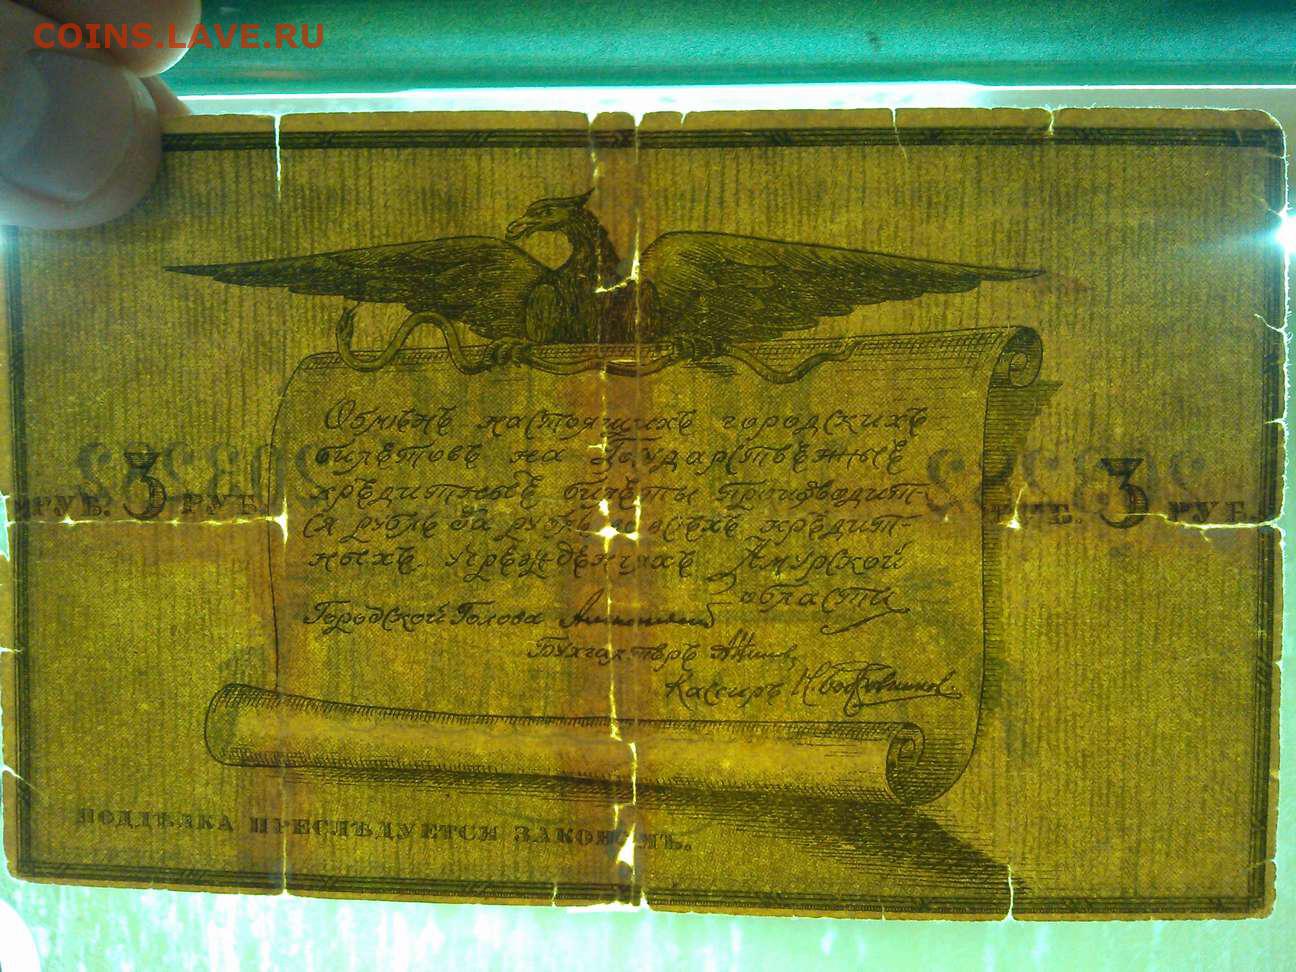 COINS.LAVE.RU
Обмѣнъ настоящихъ городскихъ
билетовъ на Государственные
кредитные билеты производит-
ся рубль за рубль во всѣхъ кредит-
ныхъ учрежденіяхъ Амурской
области
3 РУБ. 3 РУБ.
РУБ. 3 РУБ.
Городской Голова
Бухгалтеръ
Кассиръ
ПОДДѢЛКА ПРЕСЛѢДУЕТСЯ ЗАКОНОМЪ.